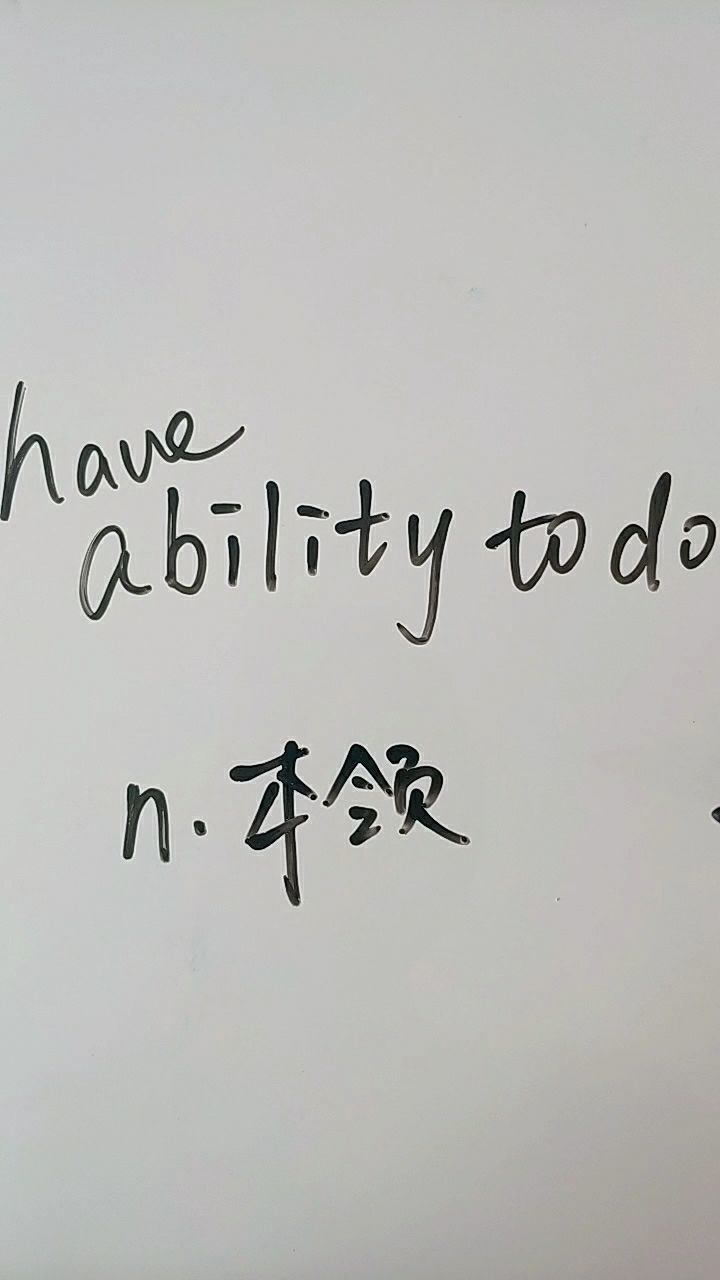 have
ability to do
n. 本领